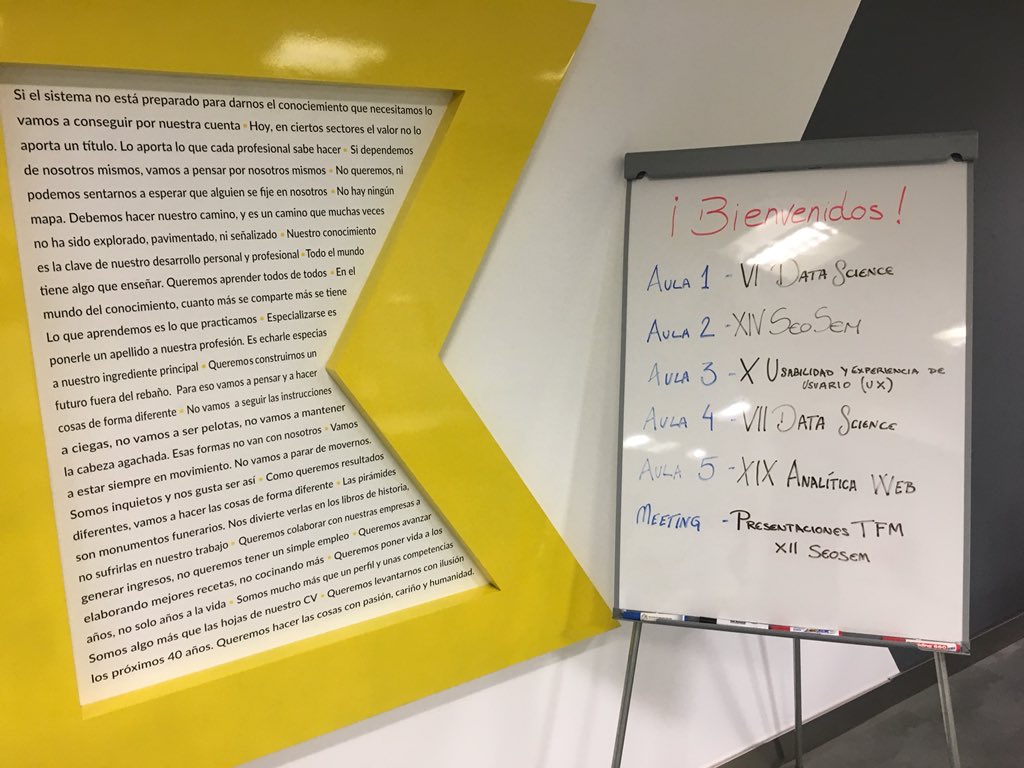 Si el sistema no está preparado para darnos el conociemiento que necesitamos lo
vamos a conseguir por nuestra cuenta • Hoy, en ciertos sectores el valor no lo
aporta un título. Lo aporta lo que cada profesional sabe hacer • Si dependemos
de nosotros mismos, vamos a pensar por nosotros mismos • No queremos, ni
podemos sentarnos a esperar que alguien se fije en nosotros • No hay ningún
mapa. Debemos hacer nuestro camino, y es un camino que muchas veces
no ha sido explorado, pavimentado, ni señalizado • Nuestro conocimiento
es la clave de nuestro desarrollo personal y profesional • Todo el mundo
tiene algo que enseñar. Queremos aprender todos de todos • En el
mundo del conocimiento, cuanto más se comparte más se tiene
Lo que aprendemos es lo que practicamos • Especializarse es
ponerle un apellido a nuestra profesión. Es echarle especias
a nuestro ingrediente principal • Queremos construirnos un
futuro fuera del rebaño. Para eso vamos a pensar y a hacer
cosas de forma diferente • No vamos a seguir las instrucciones
a ciegas, no vamos a ser pelotas, no vamos a mantener
la cabeza agachada. Esas formas no van con nosotros • Vamos
a estar siempre en movimiento. No vamos a parar de movernos.
Somos inquietos y nos gusta ser así • Como queremos resultados
diferentes, vamos a hacer las cosas de forma diferente • Las pirámides
son monumentos funerarios. Nos divierte verlas en los libros de historia,
no sufrirlas en nuestro trabajo • Queremos colaborar con nuestras empresas a
generar ingresos, no queremos tener un simple empleo • Queremos avanzar
elaborando mejores recetas, no cocinando más • Queremos poner vida a los
años, no solo años a la vida • Somos mucho más que un perfil y unas competencias
Somos algo más que las hojas de nuestro CV • Queremos levantarnos con ilusión
los próximos 40 años. Queremos hacer las cosas con pasión, cariño y humanidad.
¡Bienvenidos!
Aula 1 - VI Data Science
Aula 2 - XIV SeoSem
Aula 3 - X Usabilidad y experiencia de
usuario (UX)
Aula 4 - VII Data Science
Aula 5 - XIX Analítica Web
Meeting - Presentaciones TFM
XII SeoSem